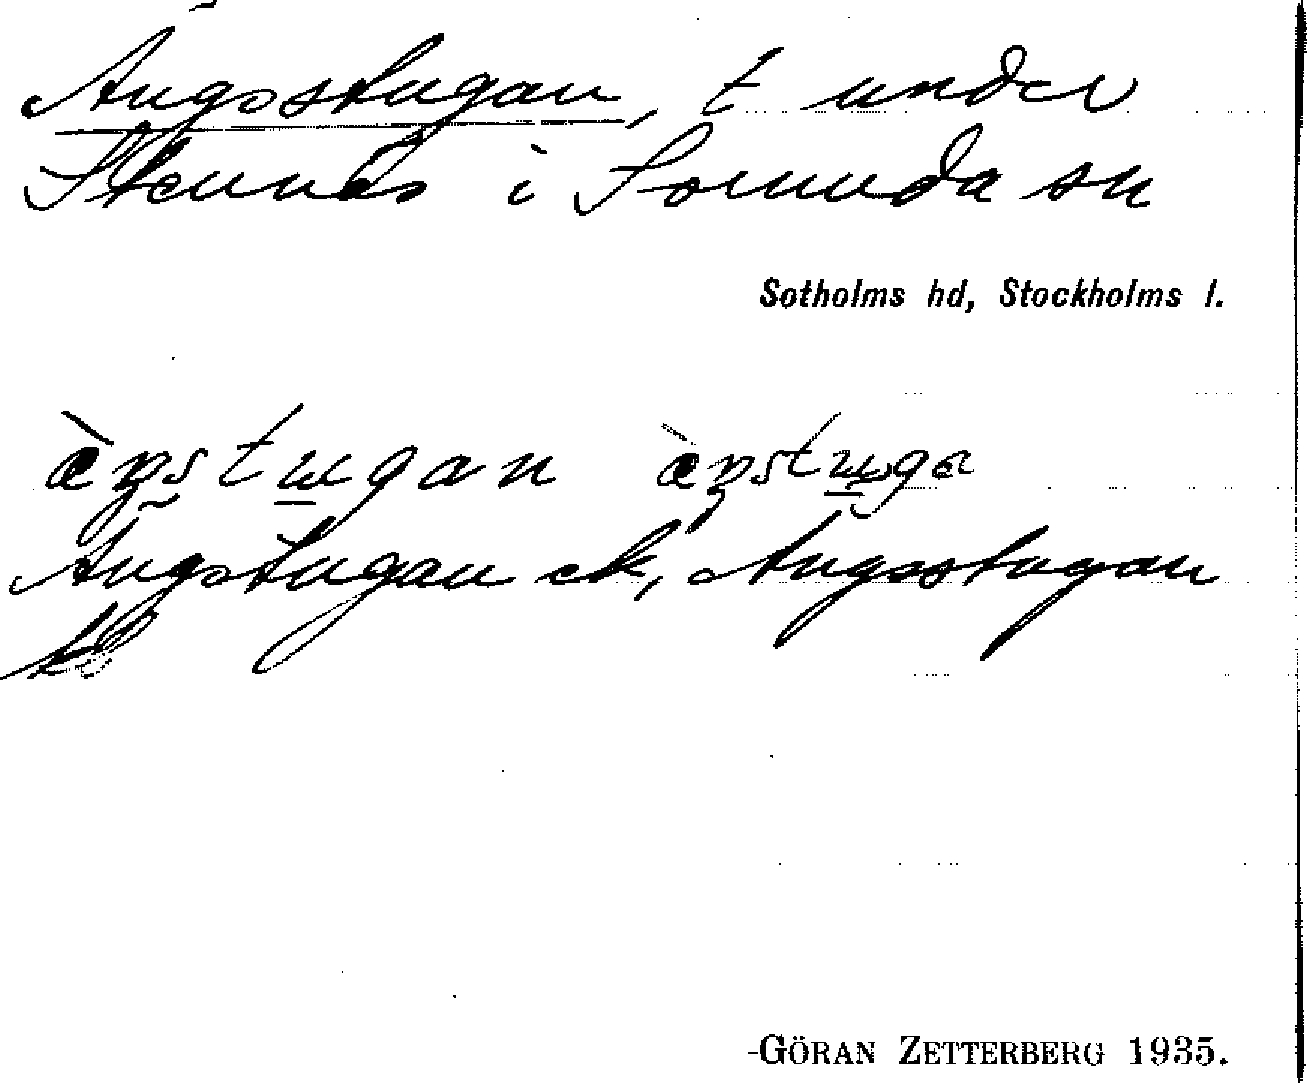 Ängsstugan, t under
Stennäs i Sorunda sn
Sotholms hd, Stockholms l.
ὰŋstugan ὰŋstuga
Ängstugan ek, Ängsstugan
GÖRAN ZETTERBERG 1935.